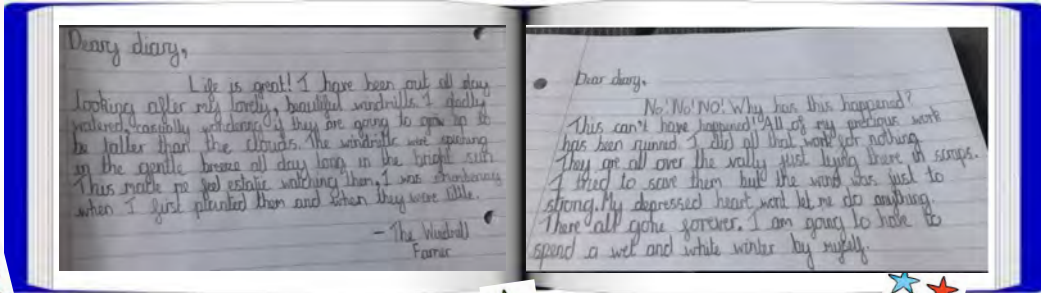 Deary diary,
Life is great! I have been out all day
looking after my lovely, beautiful windmills. I gladly
watered, casually wondering if they are going to grow up to
be taller than the clouds. The windmills were spinning
in the gentle breeze all day long in the bright sun
This made me feel estatic watching them, I was
when I first planted them and when they were little.
- The Windmill
Farmer
Dear diary,
No! No! NO! Why has this happened?
This can't have happened! All of my precious work
has been ruined. I did all that work for nothing.
They are all over the vally just lying there in scraps.
I tried to save them but the wind was just to
strong. My depressed heart wont let me do anything.
There all gone forever. I am going to have to
spend a wet and white winter by myself.